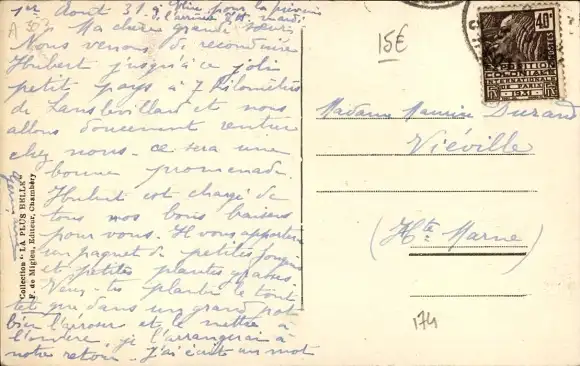 1er Août 31.
l'arrivée mardi
Ma chère grande sœur
Nous venons de reconduire
Hubert jusqu'à ce joli
petit pays à 7 kilomètres
de Lanslevillard et nous
allons doucement rentrer
chez nous. ce sera une
bonne promenade.
Hubert est chargé de
tous nos bons baisers
pour vous. Il vous apportera
un paquet de petites fougères
et petites plantes grasses
Veux-tu planter le tout
que dans un grand pot
bien l'arroser et le mettre à
l'ombre, je l'arrangerai à
notre retour. J'ai écrit un mot
Collection "LA PLUS BELLE"
F. de Miglen, Editeur, Chambéry
15E
40c
POSTES
EXPOSITION
COLONIALE
INTERNATIONALE
DE PARIS
1931
Madame Maurice Durand
Viéville
(Hte Marne)
174